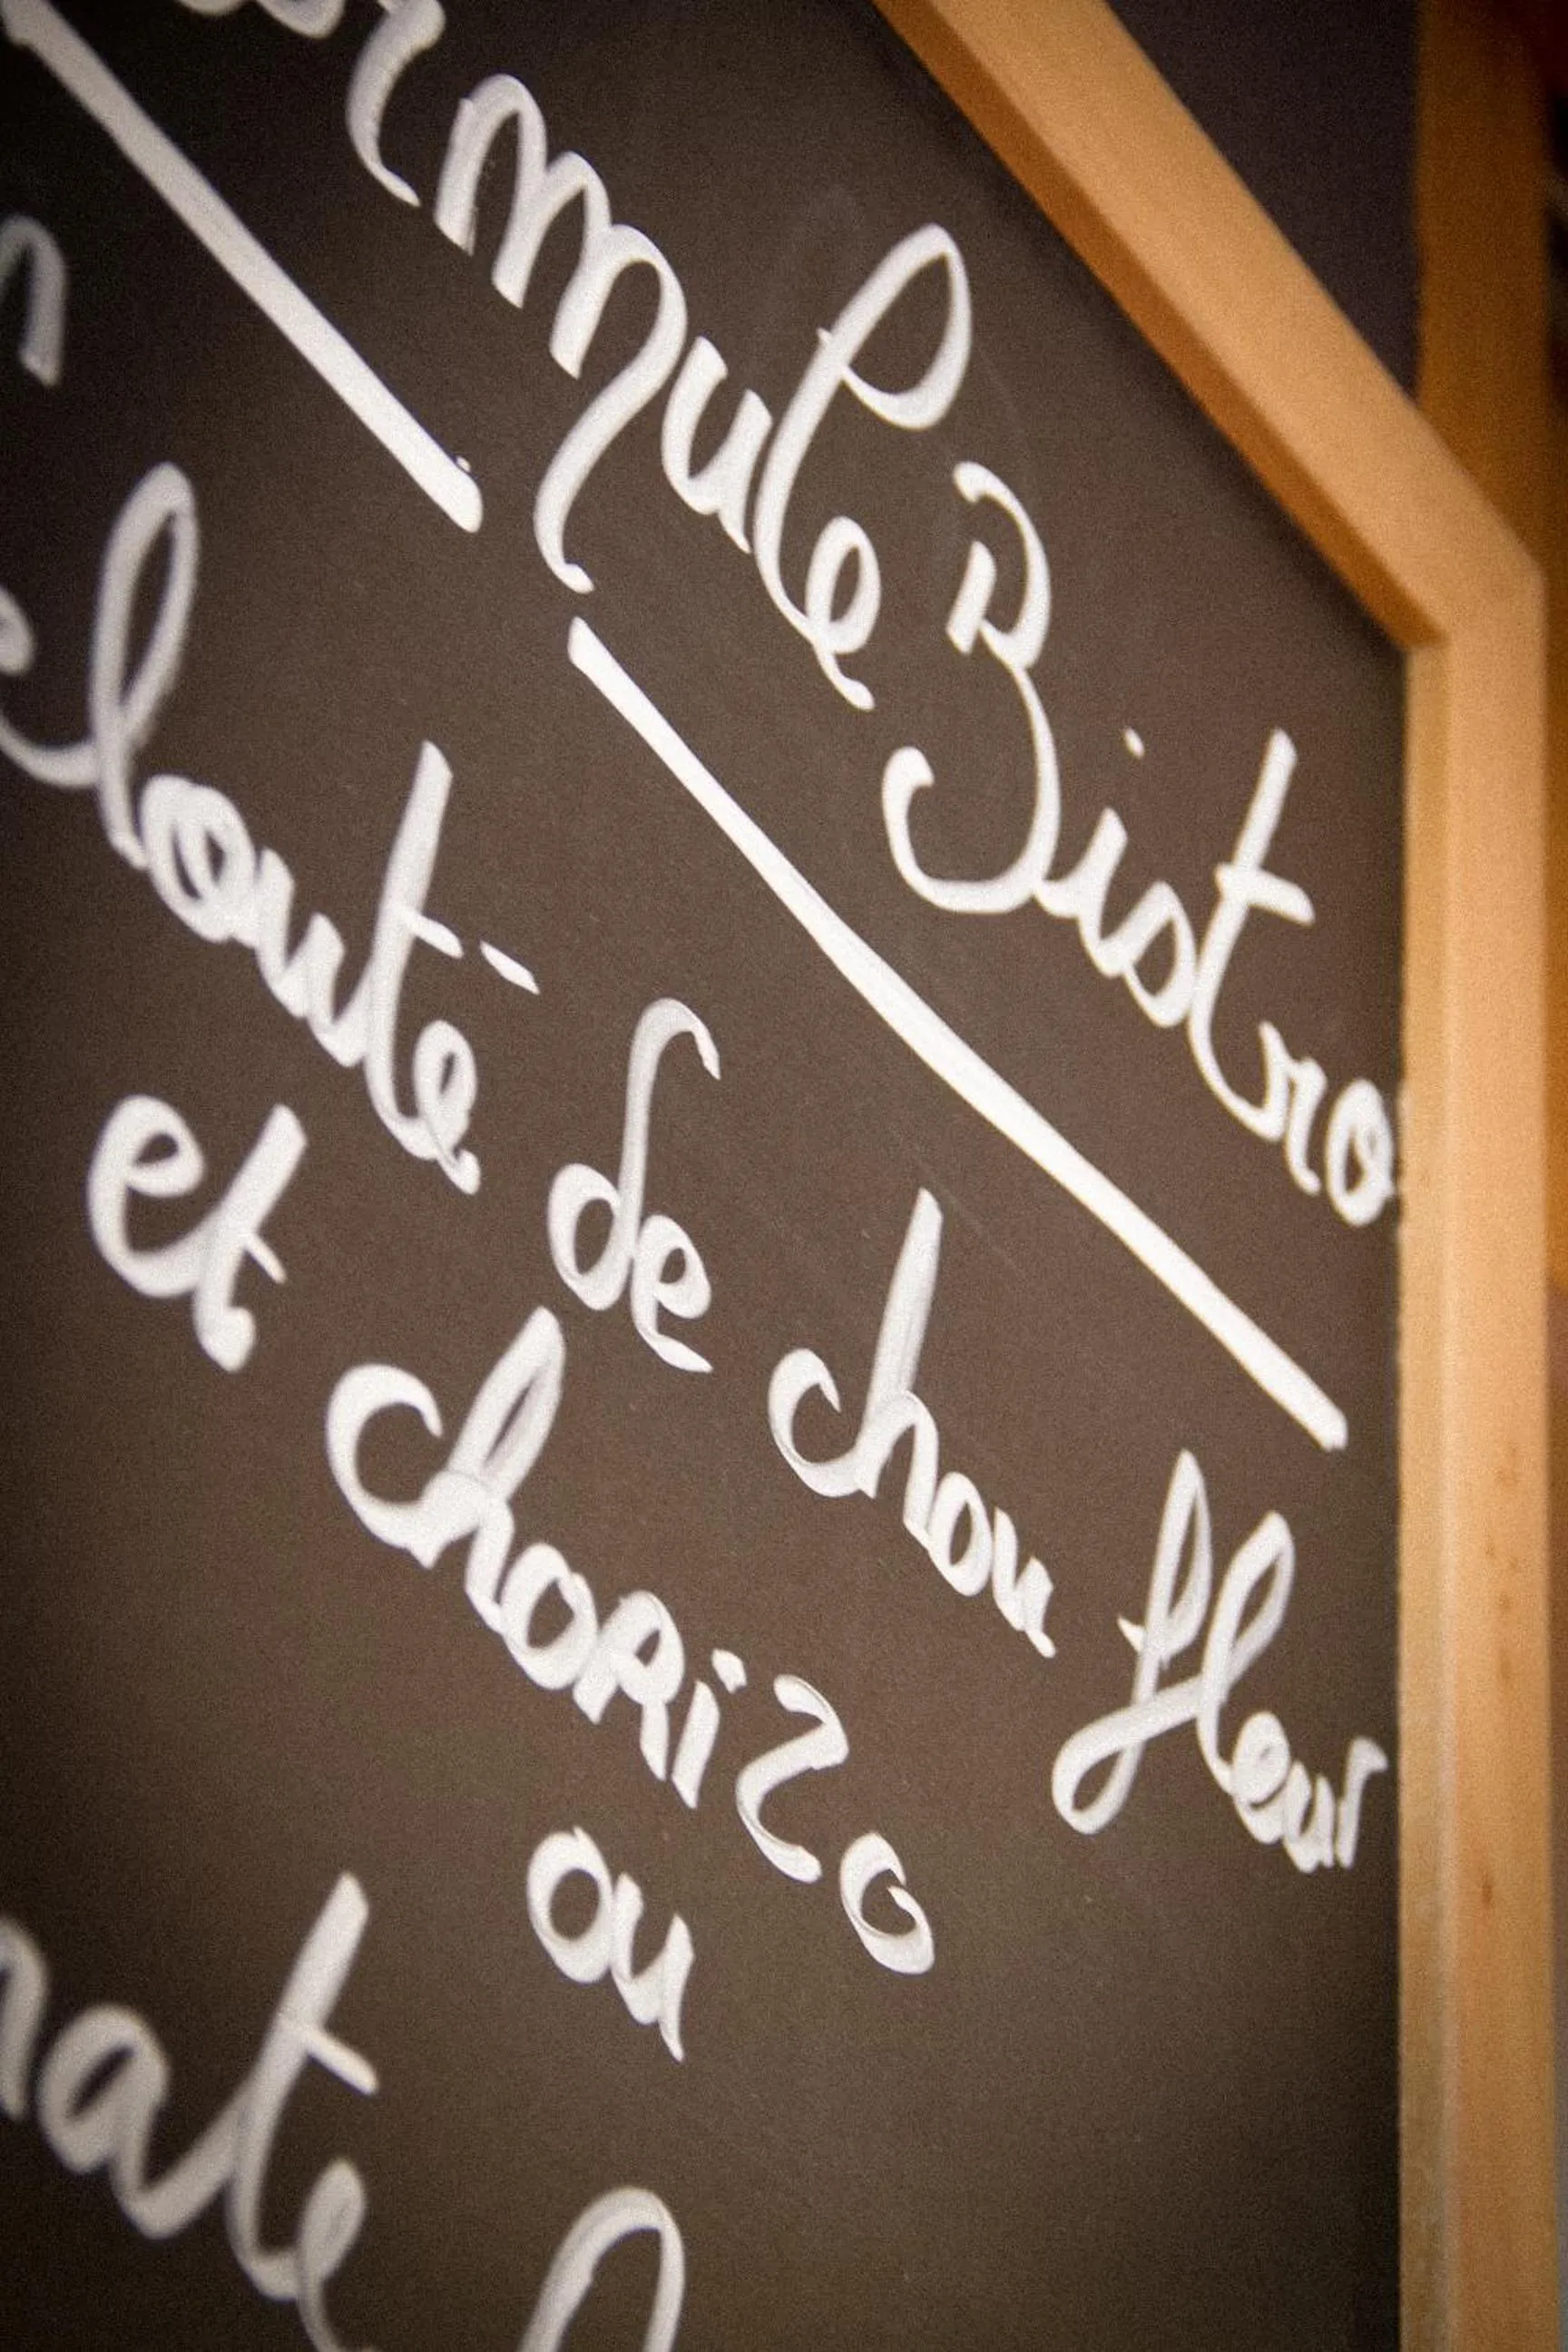 ormule Bistro
elouté de chou fleur
et choRizo
ou
nate